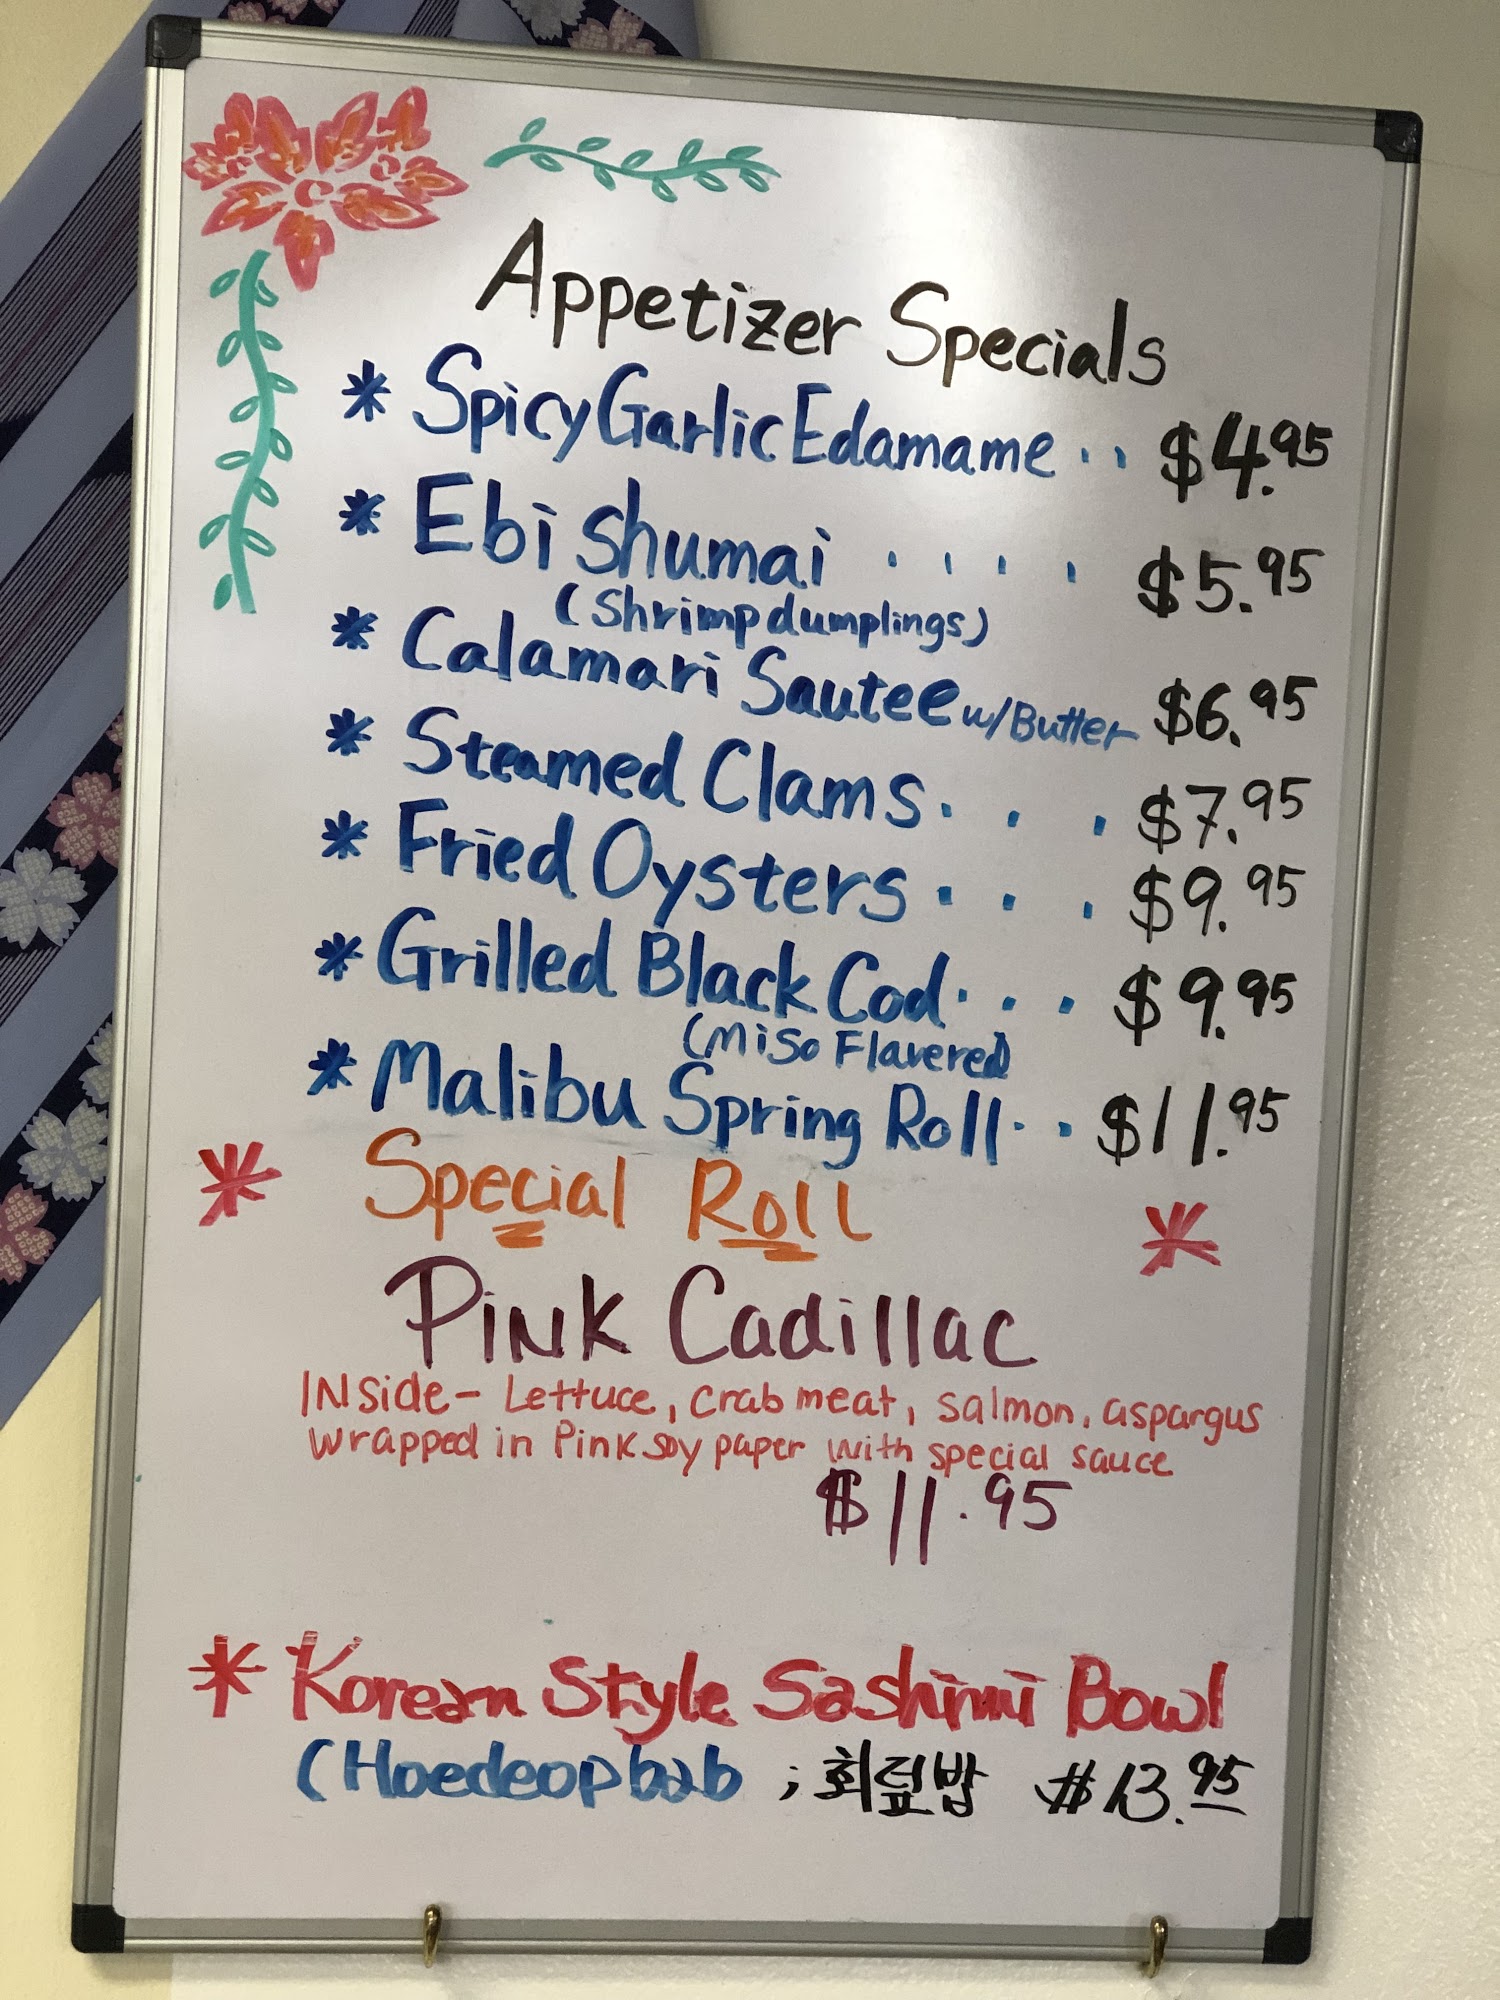 Appetizer Specials
* Spicy Garlic Edamame .. $4.95
* Ebi Shumai .... $5.95
(Shrimp dumplings)
* Calamari Sautee w/Butter $6.95
* Steamed Clams... $7.95
* Fried Oysters... $9.95
* Grilled Black Cod... $9.95
(Miso Flavered)
* Malibu Spring Roll.. $11.95
* Special Roll *
Pink Cadillac
INside - Lettuce, crab meat, salmon, aspargus
wrapped in Pink soy paper with special sauce
$11.95
* Korean Style Sashimi Bowl
(Hoedeopbab ; 회덮밥 $13.95